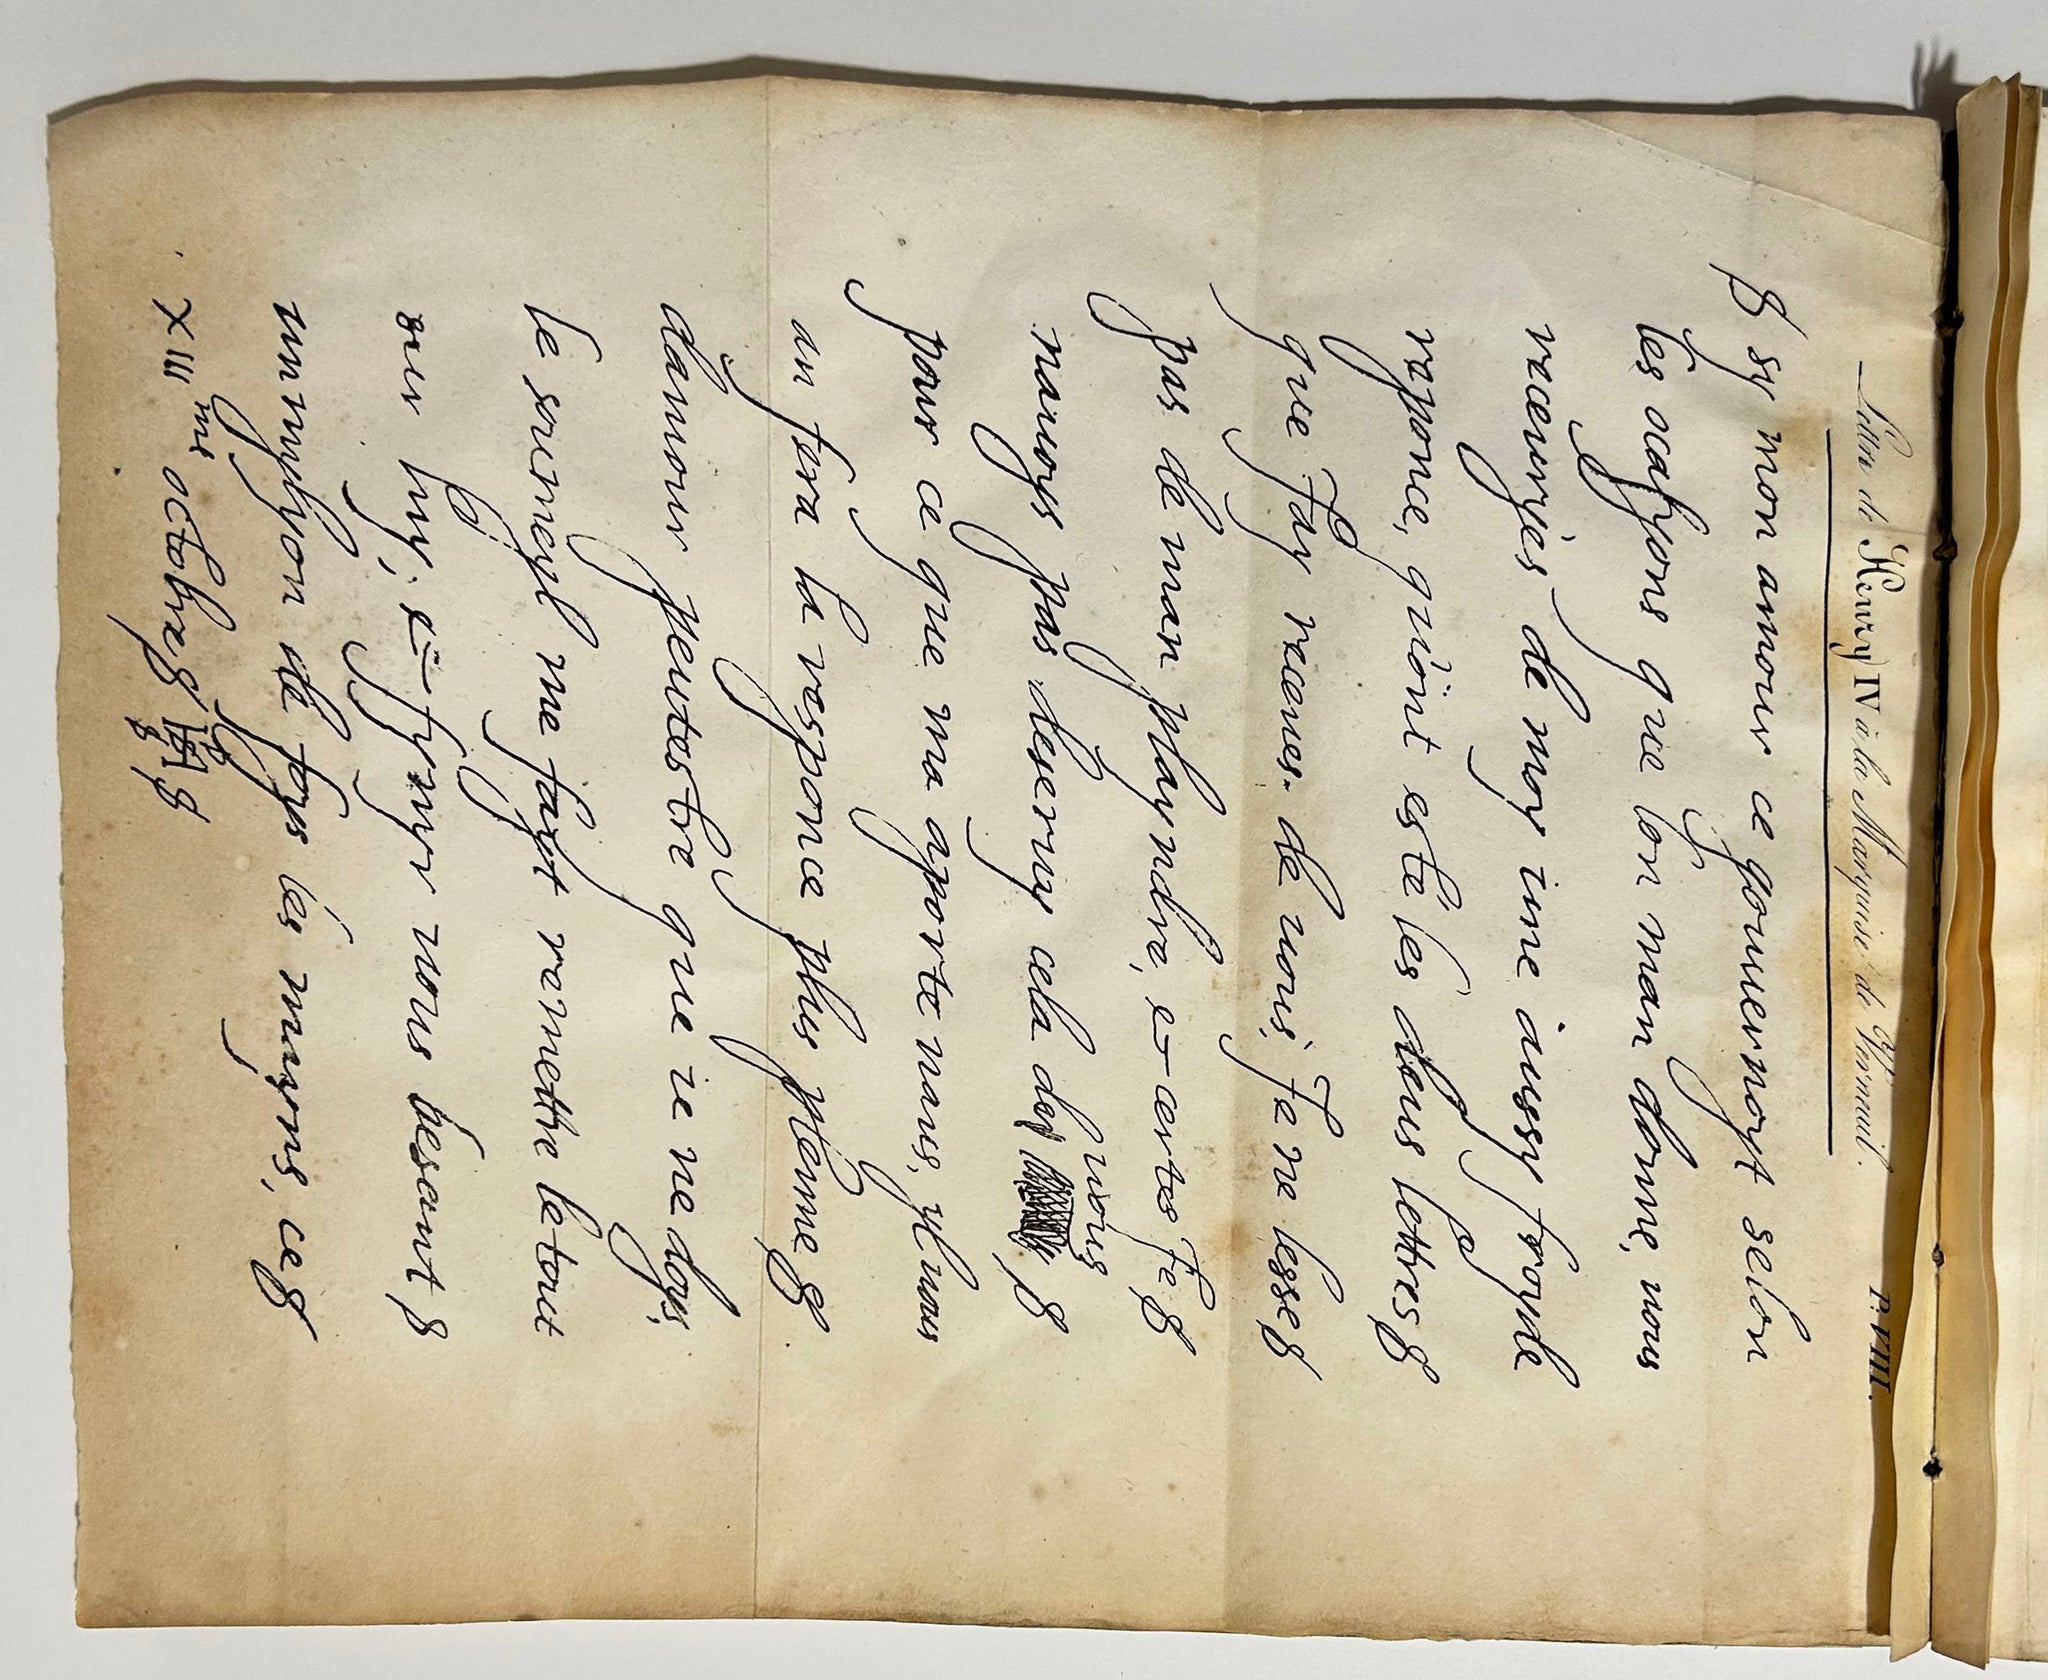 P. VIII.
Lettre de Henry IV à la Marquise de Verneuil.
sy mon amour ce gouuernoyt selon
les ocasyons que lon man donne, vous
receuryes de moy une aussy froyde
reponce, quont esté les deus lettres
que Jay receues de vous, Je ne lesse
pas de man playndre, et certes Je
nauoys pas deseruy cela de vous
pour ce que ma aporte nanis, yl vous
an fera la responce plus plenne
damour peutestre que ie ne doys,
le soumeyl me fayt remettre le tout
sur luy, et fynyr vous besant
un mylyon de foys les myens, ce
XIII me octobre